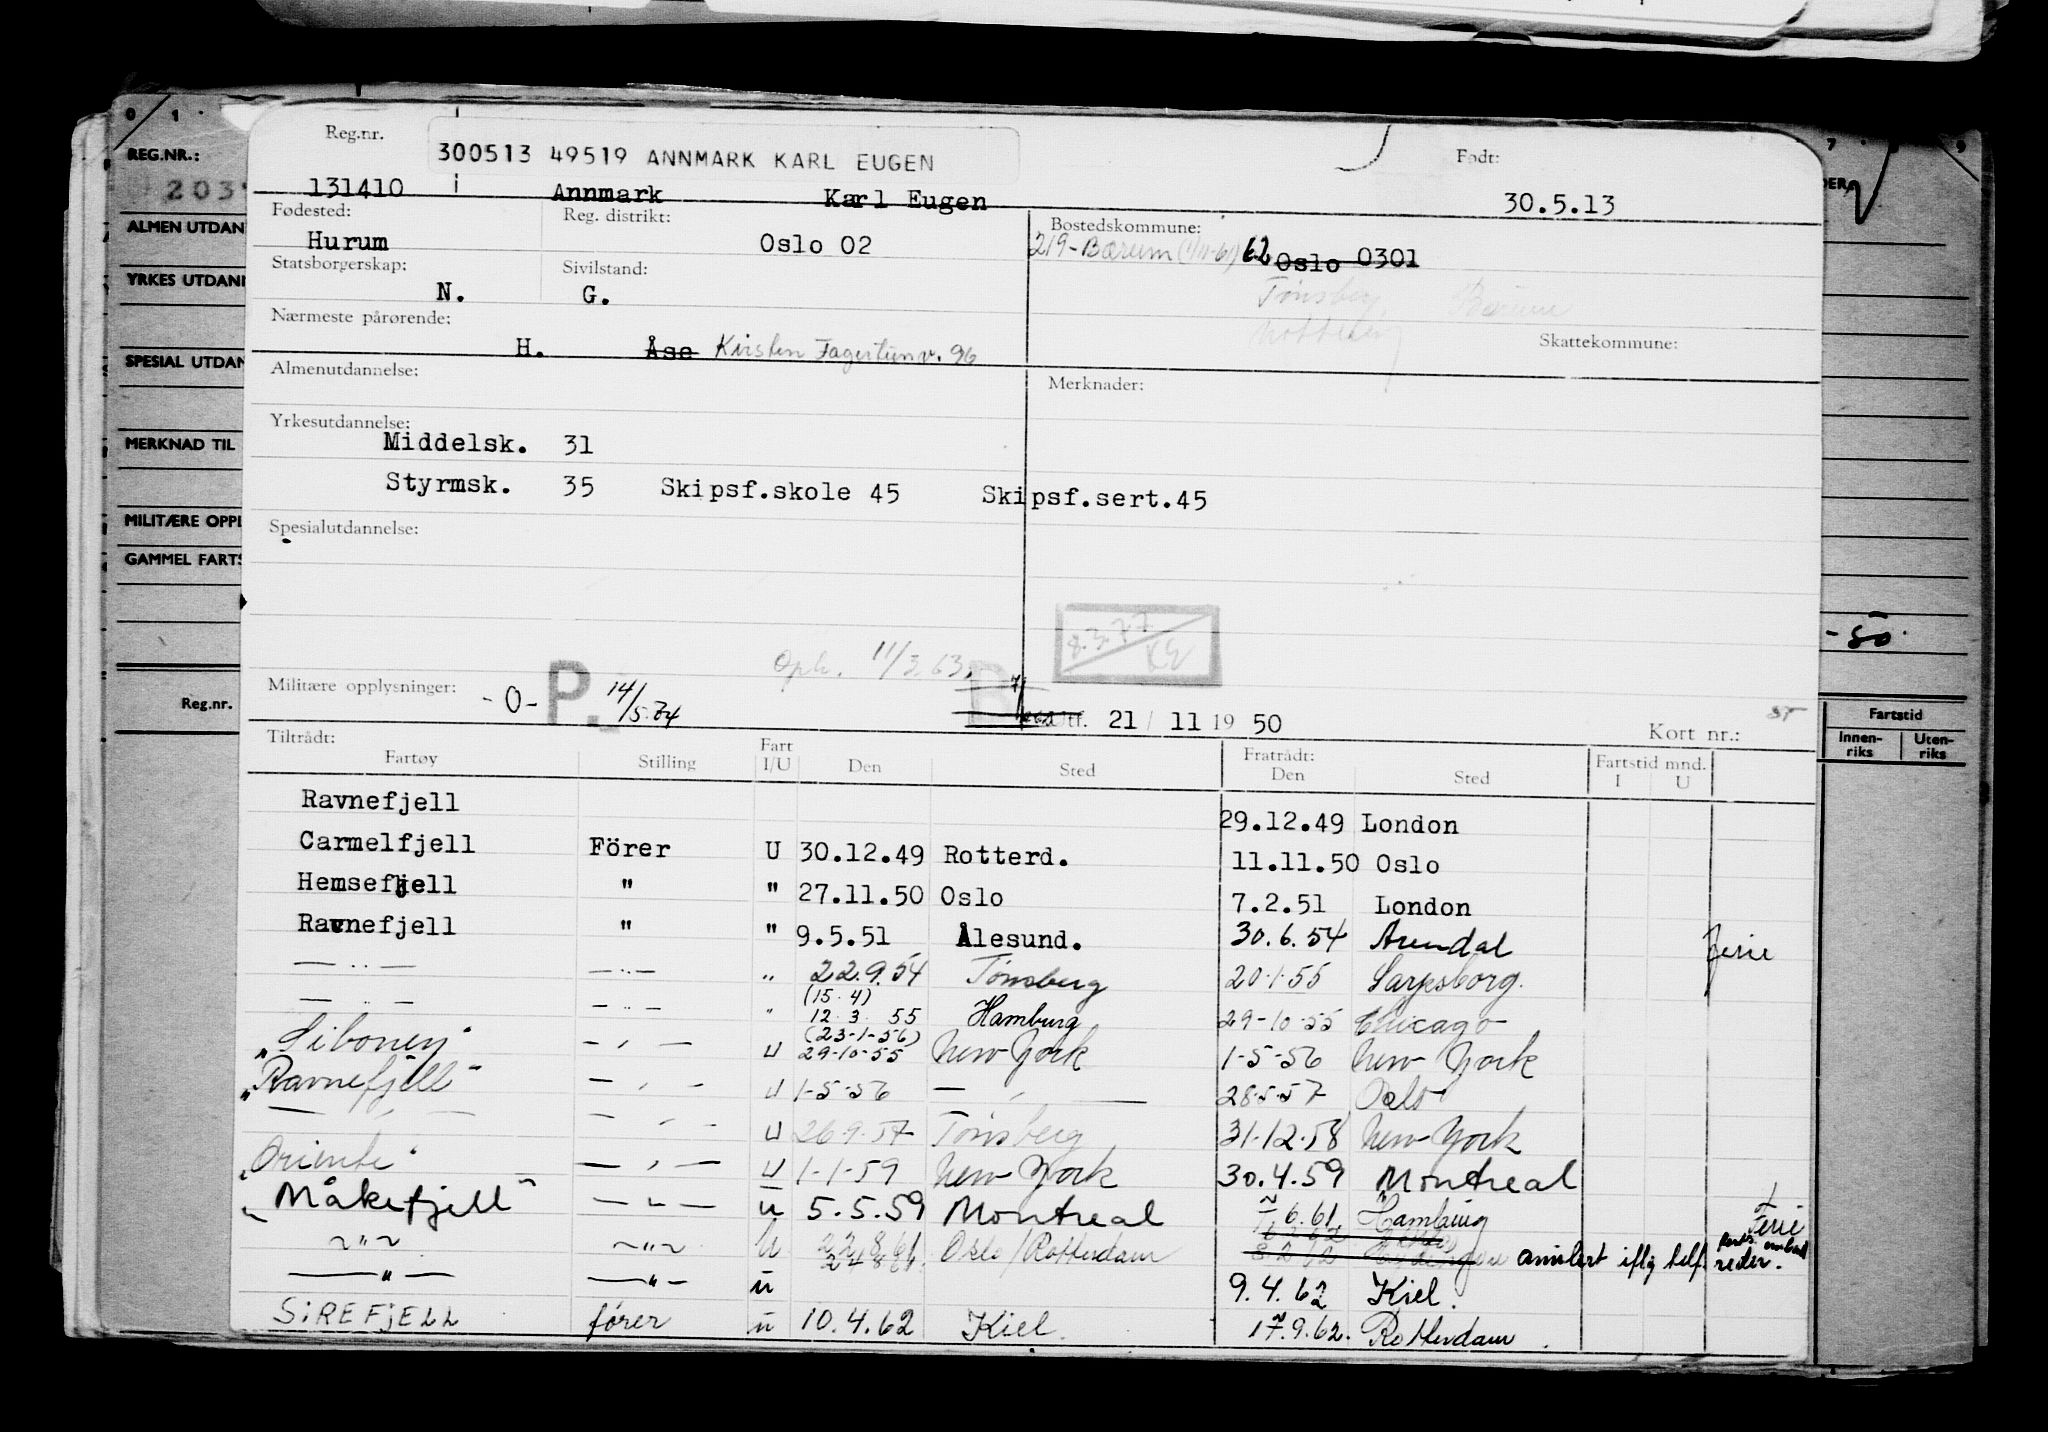 0 1
REG.NR.:
203
ALMEN UTDAN
YRKES UTDANN
SPESIAL UTDAN
MERKNAD TIL
MILITÆRE OPPL
GAMMEL FARTS
Reg.nr.
Reg.nr. 300513 49519 ANNMARK KARL EUGEN Født:
131410 Annmark Karl Eugen 30.5.13
Fødested: Reg. distrikt: Bostedskommune:
Hurum Oslo 02 219-Bærum (1/11-61) 62 Oslo 0301
Statsborgerskap: Sivilstand: Tønsberg, Bærum
N. G.
Nærmeste pårørende: Skattekommune:
H. Åse Kirsten Fagertunv. 96
Almenutdannelse: Merknader:
Yrkesutdannelse:
Middelsk. 31
Styrmsk. 35 Skipsf.skole 45 Skipsf.sert.45
Spesialutdannelse:
8.3.77
Oph. 11/3.63.
Militære opplysninger: -0- P. 14/5.74 B
Utf. 21/ 11 19 50 Kort nr.:
Tiltrådt: Fratrådt:
Fartøy Stilling Fart I/U Den Sted Den Sted Fartstid mnd. I U
Ravnefjell 29.12.49 London
Carmelfjell Förer U 30.12.49 Rotterd. 11.11.50 Oslo
Hemsefjell " " 27.11.50 Oslo 7.2.51 London
Ravnefjell " " 9.5.51 Ålesund. 30.6.54 Arendal ferie
— " — — " — " 22.9.54 Tønsberg 20.1.55 Sarpsborg.
(15.4)
— " — — " — " 12.3.55 Hamburg 29-10-55 Chicago
(23-1-56)
"Siboney" — " — U 29-10-55 New York 1-5-56 New York
"Ravnefjell" — " — U 1-5-56 — " — 28.5.57 Oslo
— " — — " — U 26.9.57 Tønsberg 31.12.58 New York
"Oriente" — " — U 1-1-59 New York 30.4.59 Montreal
"Måkefjell" — " — U 5.5.59 Montreal 6.61 Hamburg ferie
— " — — " — U 22.8.61 Oslo/Rotterdam 8.2.62 iflg telf. reder.
— " — — " — U 9.4.62 Kiel.
SiREFjELL fører U 10.4.62 Kiel. 17.9.62. Rotterdam.
-50.
Fartstid
Innen-riks Uten-riks